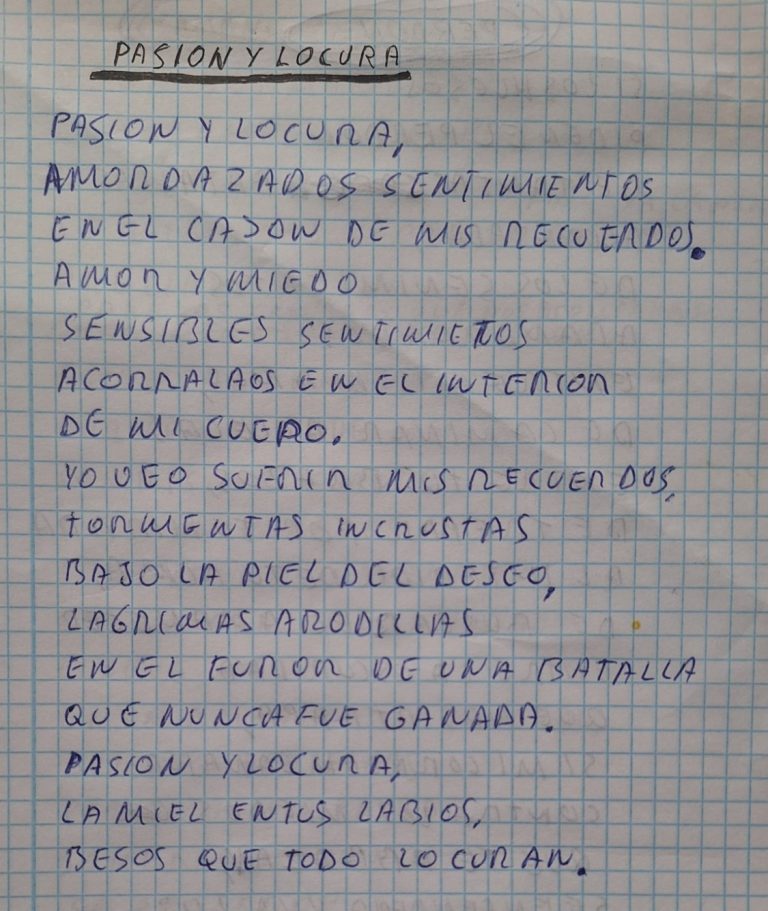 PASION Y LOCURA
PASION Y LOCURA,
AMORDAZADOS SENTIMIENTOS
EN EL CAJON DE MIS RECUERDOS.
AMOR Y MIEDO
SENSIBLES SENTIMIETOS
ACORRALAOS EN EL INTERIOR
DE MI CUERO.
YO VEO SUFRIR MIS RECUERDOS,
TORMENTAS INCRUSTAS
BAJO LA PIEL DEL DESEO,
LAGRIMAS ARODILLAS
EN EL FUROR DE UNA BATALLA
QUE NUNCA FUE GANADA.
PASION Y LOCURA,
LA MIEL EN TUS LABIOS,
BESOS QUE TODO LO CURAN.